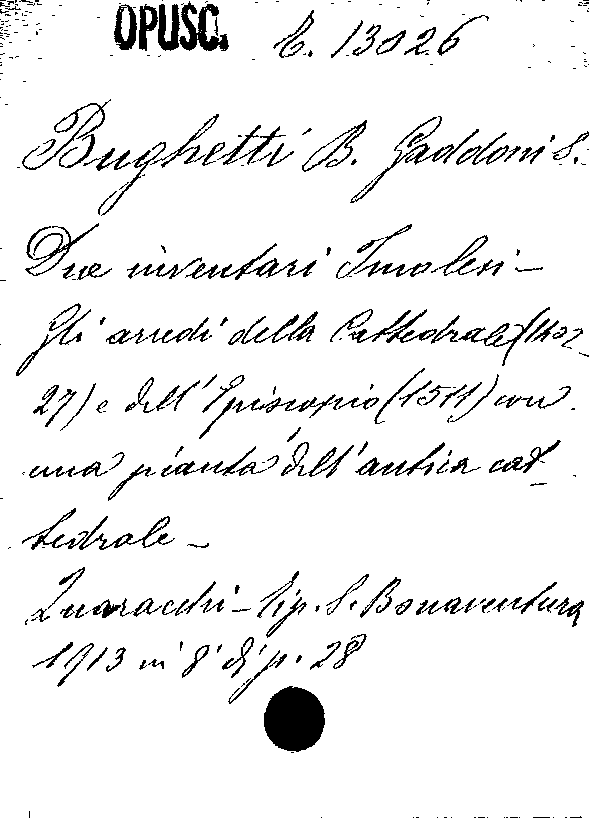 OPUSC. C. 13026
Bughetti B. Gaddoni S.
Due inventari Imolesi -
Gli arredi della Cattedrale (1402-
27) e dell'Episcopio (1511) con
una pianta dell'antica cat-
tedrale -
Quaracchi - Tip. S. Bonaventura
1913 in 8° di p. 28